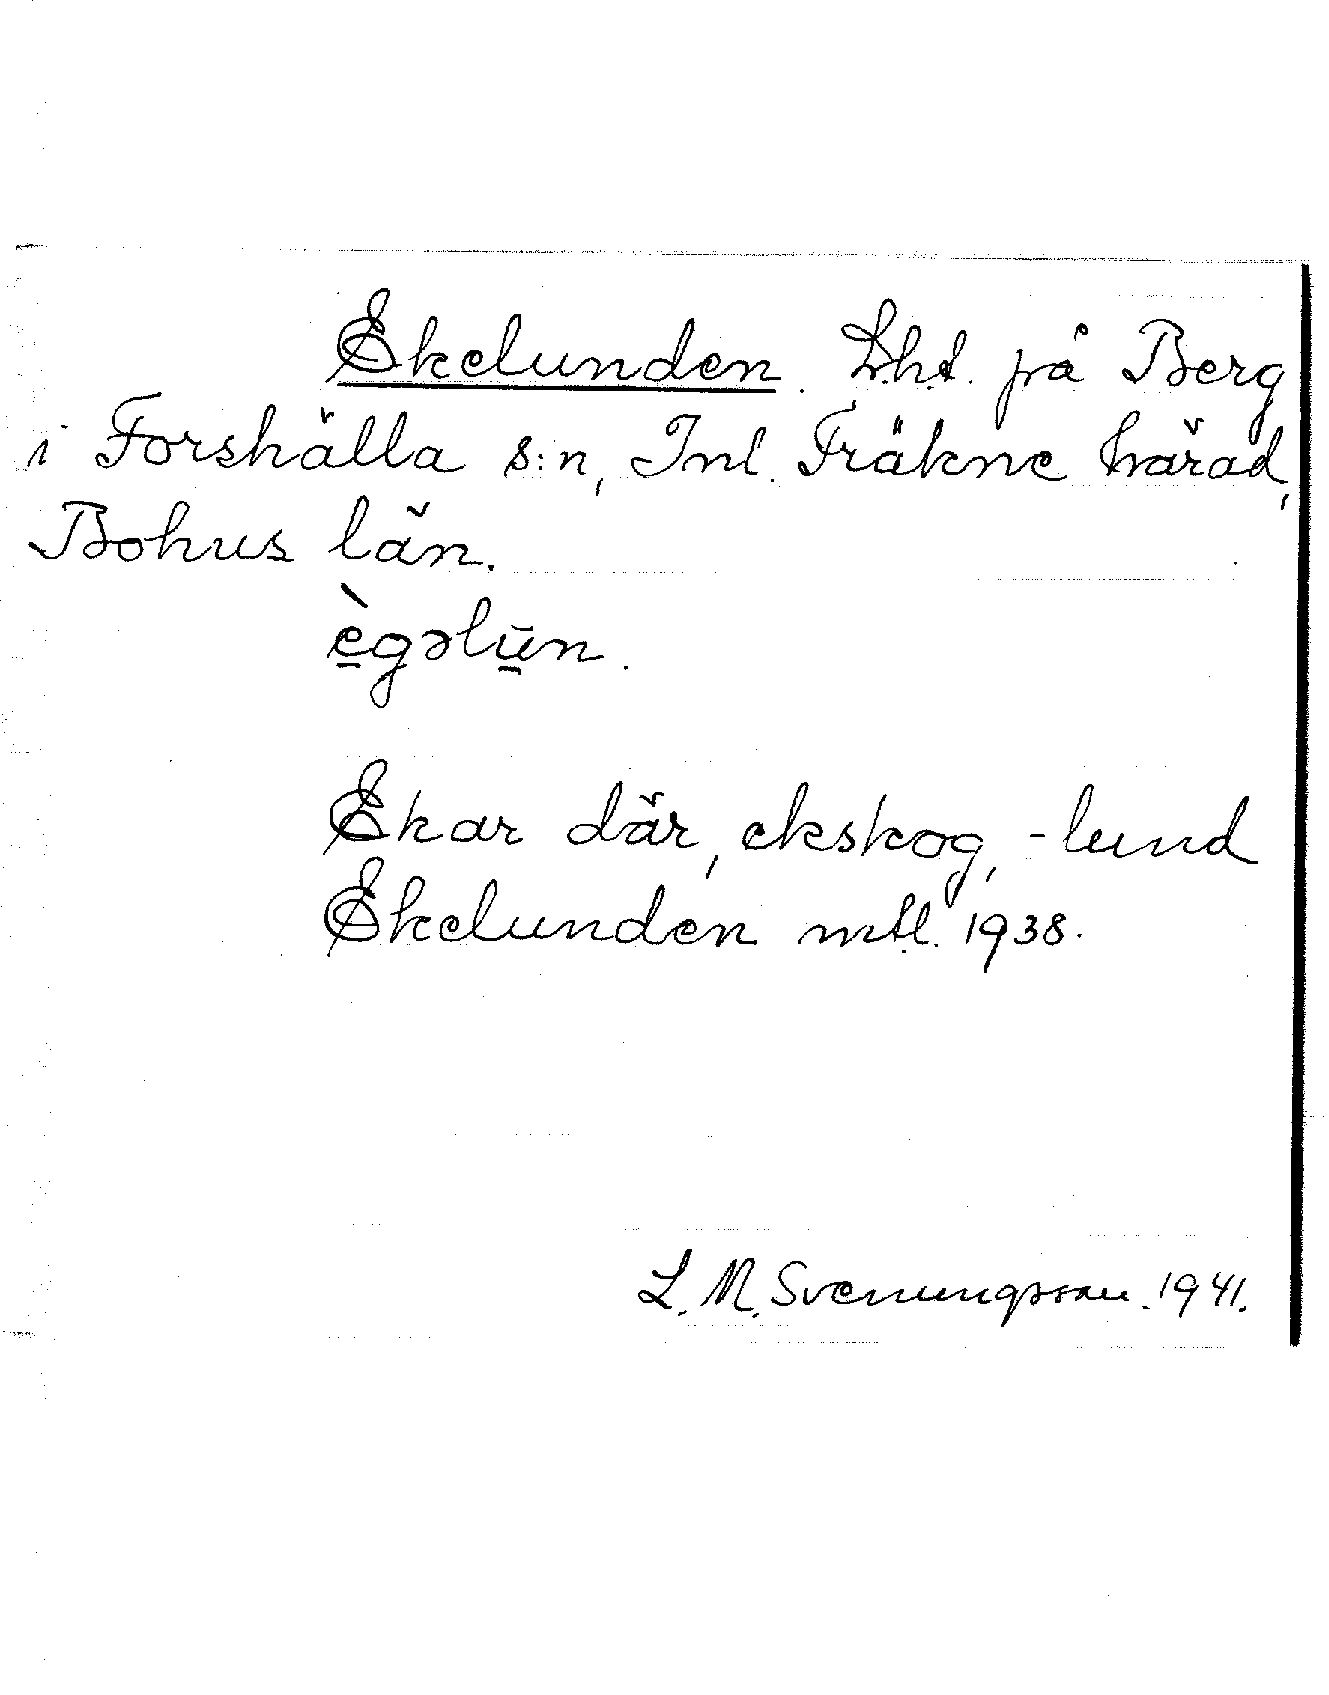 Ekelunden. Lht. på Berg
i Forshälla s:n, Inl. Fräkne härad,
Bohus län.
è̱gəlū̱n.
Ekar där, ekskog, -lund
Ekelunden mtl. 1938.
L. M. Svenungsson. 1941.